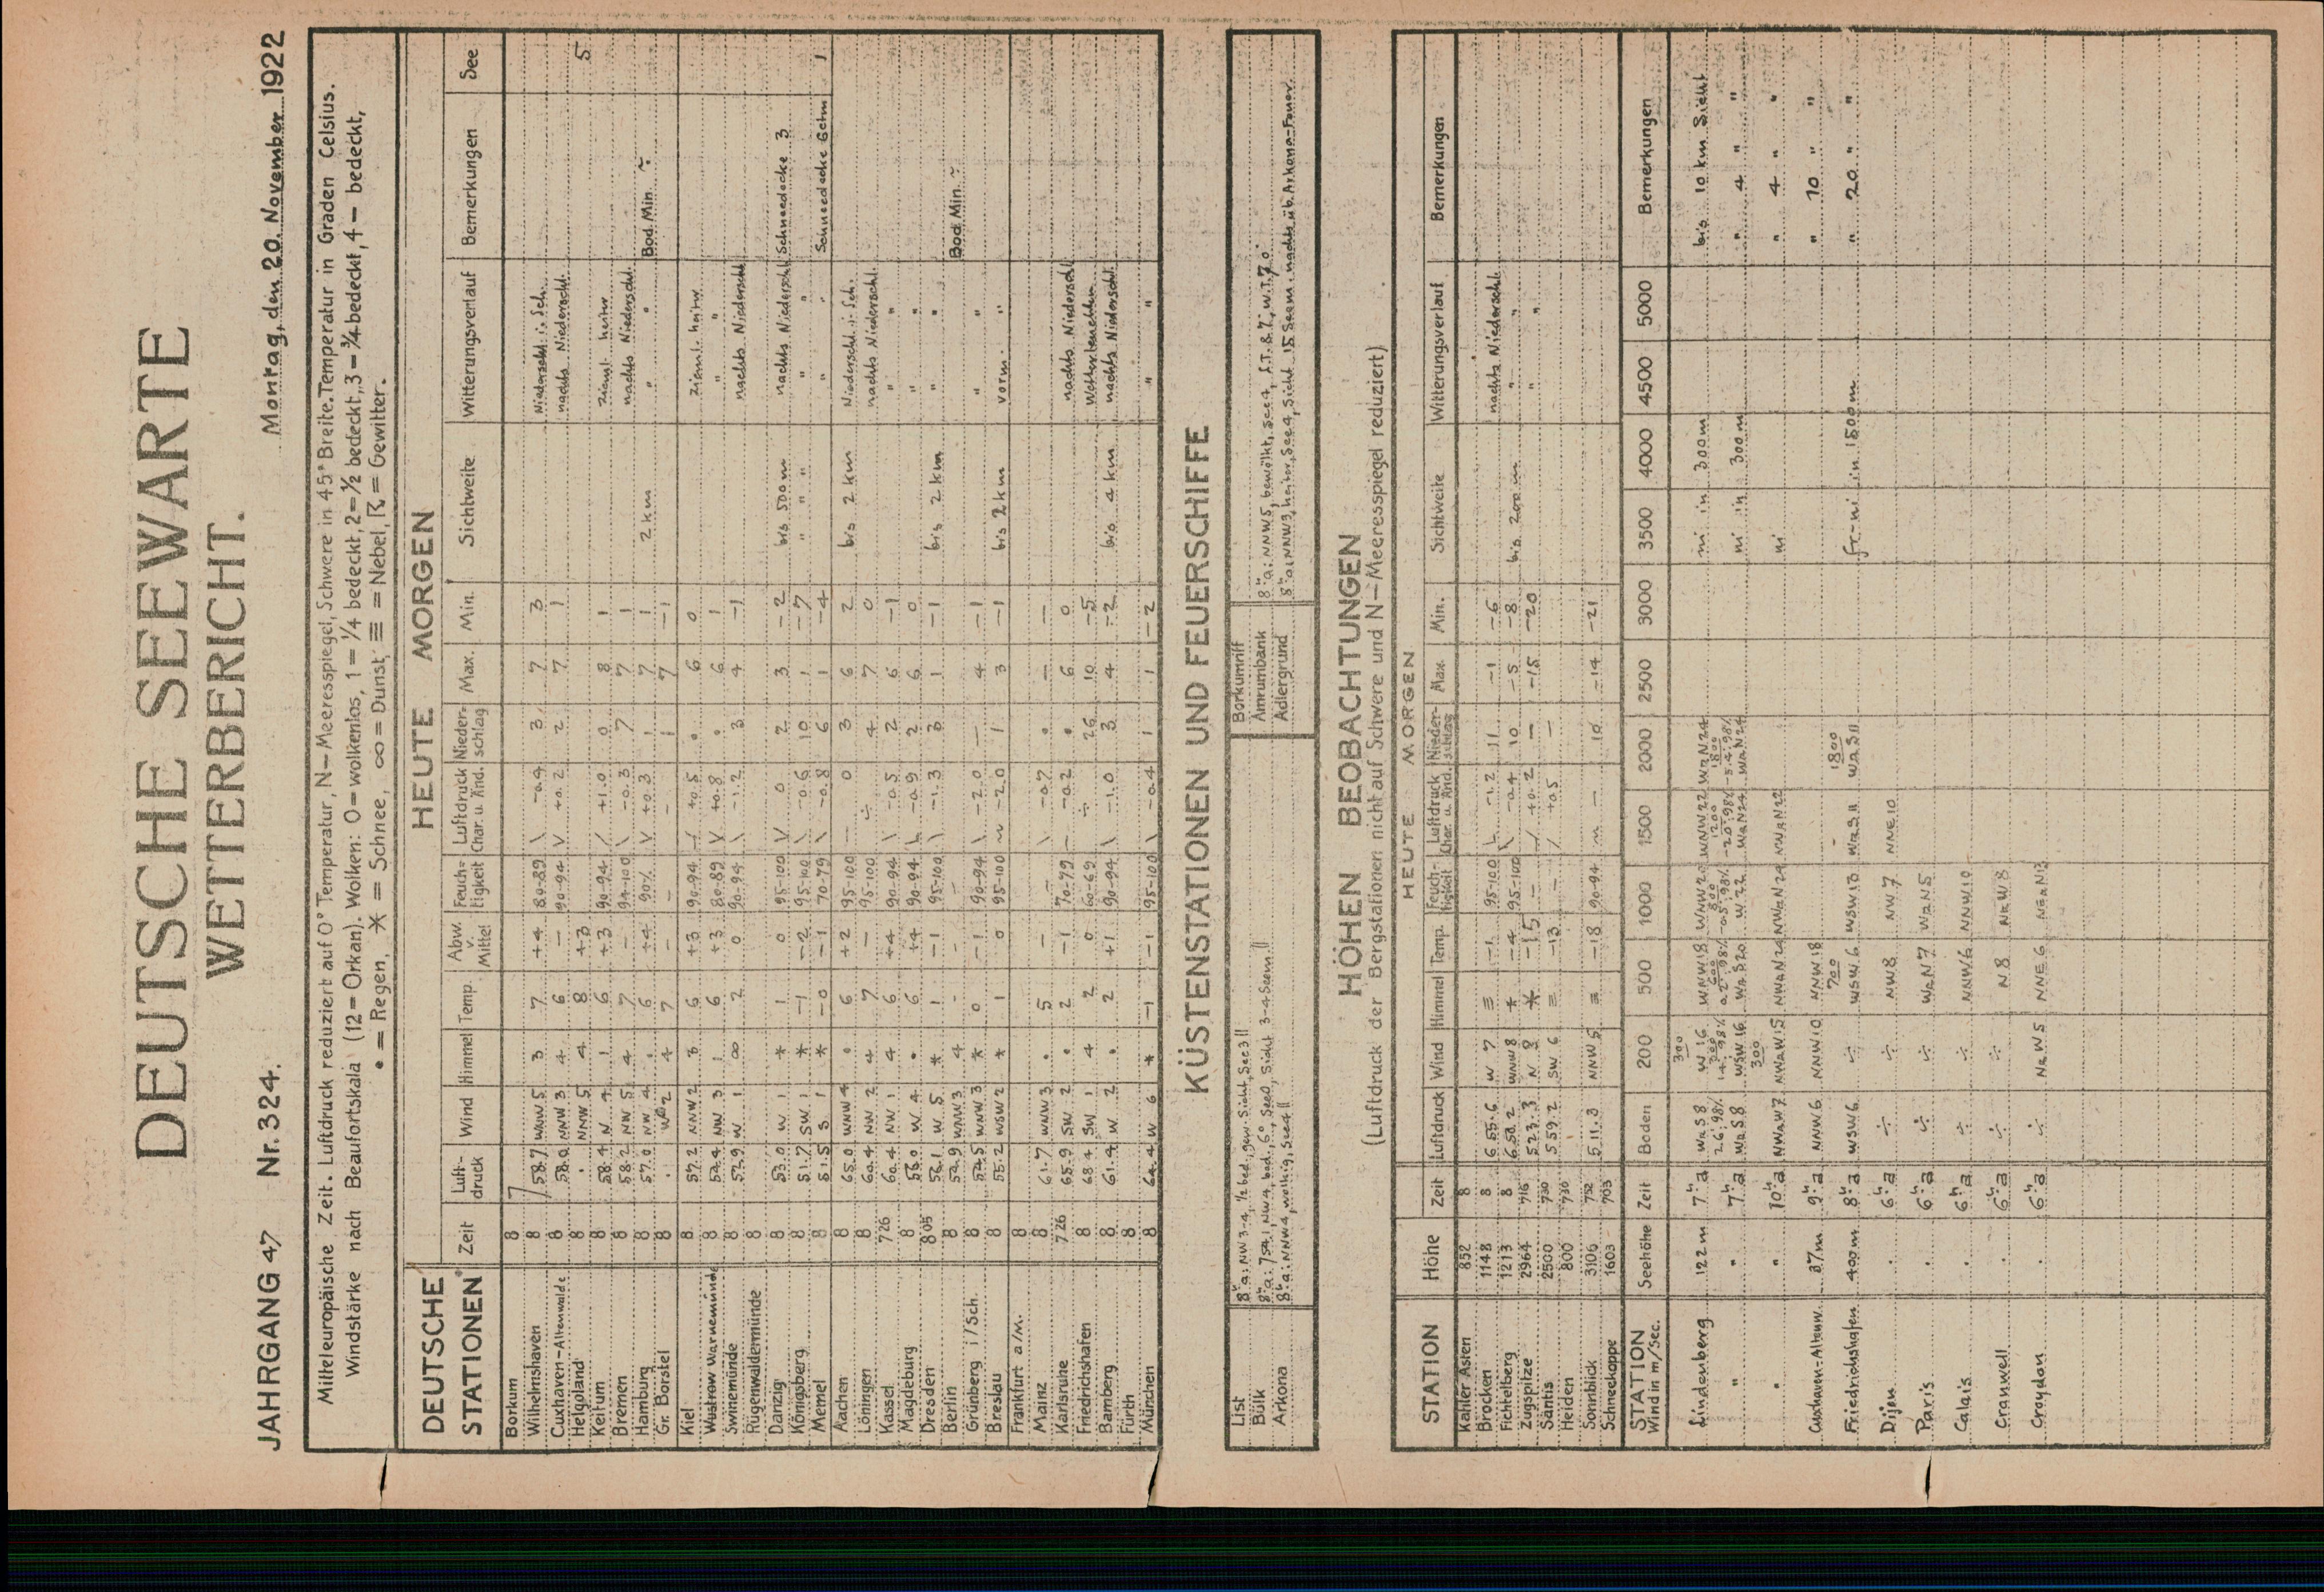 DEUTSCHE SEEWARTE
WETTERBERICHT.
JAHRGANG 47 Nr. 324. Montag, den 20. November 1922
Mitteleuropäische Zeit. Luftdruck reduziert auf 0° Temperatur, N-Meeresspiegel, Schwere in 45° Breite. Temperatur in Graden Celsius.
Windstärke nach Beaufortskala (12 = Orkan). Wolken: 0 = wolkenlos, 1 = 1/4 bedeckt, 2 = 1/2 bedeckt, 3 = 3/4 bedeckt, 4 - bedeckt,
• = Regen, * = Schnee, ∞ = Dunst, ≡ = Nebel, ☈ = Gewitter.
DEUTSCHE STATIONEN HEUTE MORGEN
Zeit Luft-druck Wind Himmel Temp Abw. v. Mittel Feuch-tigkeit Luftdruck Char. u. Änd. Nieder-schlag Max. Min. Sichtweite Witterungsverlauf Bemerkungen See
Borkum 8
Wilhelmshaven 8 58.7 WNW 5 3 7 +4 80-89 \ -0.9 3 7 3 Niederschl. i. Sch.
Cuxhaven-Altenwalde 8 58.0 NNW 3 4 6 - 90-94 V +0.2 2 7 1 nachts Niederschl.
Helgoland 8 . NNW 5 4 8 +3 5
Keitum 8 58.4 N 4 1 6 +3 90-94 / +1.0 0 8 1 zieml. heiter
Bremen 8 58.2 NW 5 4 7 - 94-100 \ -0.3 7 7 1 nachts Niederschl.
Hamburg 8 57.0 NW 4 . 6 +4 90% V +0.3 1 7 1 2 km " " Bod. Min ~
Gr. Borstel 8 . W 2 4 7 - - - 1 7 -1
Kiel 8 57.2 NNW 2 3 6 +3 90-94 +0.5 • 6 0 zieml. heiter
Wustrow Warnemünde 8 NW 3 1 6 +3 80-89 V +0.8 • 6 1 " "
Swinemünde 8 W 1 ∞ 2 0 90-94 \ -1.2 3 4 -1 nachts Niederschl.
Rügenwaldermünde 8
Danzig 8 53.0 W 1 * 1 0 95-100 V 0 2 3 -2 bis 500 m nachts Niederschl. Schneedecke 3
Königsberg 8 51.7 SW 1 * -1 -2 95-100 \ -0.6 10 1 -7 " " " " "
Memel 8 51.5 S 1 * -0 -1 70-79 \ -0.8 6 1 -4 " " Schneedecke 6 chm 1
Aachen 8 65.0 WNW 4 • 6 +2 95-100 - 0 3 6 2 bis 2 km Niederschl. i. Sch.
Löningen 8 60.4 NW 2 4 7 - 95-100 ÷ 4 7 0 nachts Niederschl.
Kassel 7 26 60.4 NW 1 4 6 +4 90-94 \ -0.5 2 6 -1 " "
Magdeburg 8 W 4 • 6 +4 90-94 -0.9 2 6 0 " "
Dresden 8 05 56.1 W 5 * 1 -1 95-100 \ -1.3 3 1 -1 bis 2 km " "
Berlin 8 WNW 3 4 - - - Bod Min. ~
Grünberg i/Sch. 8 WNW 3 * 0 -1 90-94 \ -2.0 - 4 -1 " "
Breslau 8 55.2 WSW 2 * 1 0 95-100 ~ -2.0 1 3 -1 bis 2 km vorm. "
Frankfurt a/M. 8
Mainz 8 61.7 WNW 3 • 5 - - \ -0.7 • - -
Karlsruhe 7 26 65.9 SW 2 • 2 -1 70-79 - -0.2 • 6 0 nachts Niederschl.
Friedrichshafen 8 68.4 SW 1 4 2 0 60-69 ÷ 26 10 -5 Wetterleuchten
Bamberg 8 61.4 W 2 • 2 +1 90-94 \ -1.0 3 4 -2 bis 4 km nachts Niederschl.
Fürth 8
München 8 64.4 W 6 * -1 -1 95-100 \ -0.4 1 1 -2 " "
KÜSTENSTATIONEN UND FEUERSCHIFFE
List 8 h a: NW 3-4, 1/2 bed., gew. Sicht, See 3 Borkumriff 8 h a: NNW 5, bewölkt, See 4,
Bülk Amrumbank
Arkona 8 h a: NNW 4, wolkig, See 4 Adlergrund 8 h a: NNW 3, heiter, See 4, Sicht 15 Seem. nachts üb. Arkona-Feuer.
HÖHEN BEOBACHTUNGEN
(Luftdruck der Bergstationen nicht auf Schwere und N-Meeresspiegel reduziert)
HEUTE MORGEN
STATION Höhe Zeit Luftdruck Wind Himmel Temp. Feuch-tigkeit Luftdruck Char. u. Änd. Nieder-schlag Max. Min. Sichtweite Witterungsverlauf Bemerkungen
Kahler Asten 852 8
Brocken 1148 8 655.6 W 7 ≡ -1 95-100 -1.2 11 -1 -6 nachts Niederschl.
Fichtelberg 1213 8 650.2 WNW 8 * -4 95-100 \ -0.4 10 -5 -8 bis 200 m " "
Zugspitze 2964 7 16 523.3 N 8 * -15 - / +0.2 - -15 -20 " "
Säntis 2500 7 30 559.2 SW 6 ≡ -13 - / +0.5 -
Heiden 800 7 30
Sonnblick 3106 7 52 511.3 NNW 5 ≡ -18 90-94 ~ - 10 -14 -21
Schneekoppe 1603 7 03
STATION Wind in m/Sec. Seehöhe Zeit Boden 200 500 1000 1500 2000 2500 3000 3500 4000 4500 5000 Bemerkungen
Lindenberg 122 m 7 h a WzS 8 300 W 16 WNW 18 WNW 20 WNW 22 WzN 24 ni in 300 m bis 10 km Sicht
" " 7 h a WzS 8 WSW 16 WzS 20 W 22 WzN 24 WzN 24 ni in 300 m " 4 " "
" " 10 h a NWzW 7 300 NWzW 15 NWzW 24 NWzN 24 NWzN 22 ni " 4 " "
Cuxhaven-Altenw. 37 m 9 h a NNW 6 NNW 10 NNW 18 " 10 " "
Friedrichshafen 400 m 8 h a WSW 6 ÷ 700 WSW 6 WSW 13 WzS 11 1800 WzS 11 fr-ni in 1500 m " 20 " "
Dijon . 6 h a ÷ ÷ NW 8 NW 7 NNE 10
Paris . 6 h a ÷ ÷ WzN 7 WzN 5
Calais . 6 h a ÷ ÷ NNW 6 NNW 10
Cranwell . 6 h a ÷ ÷ N 8 NzW 8
Croydon . 6 h a ÷ NzW 5 NNE 6 NEzN 13